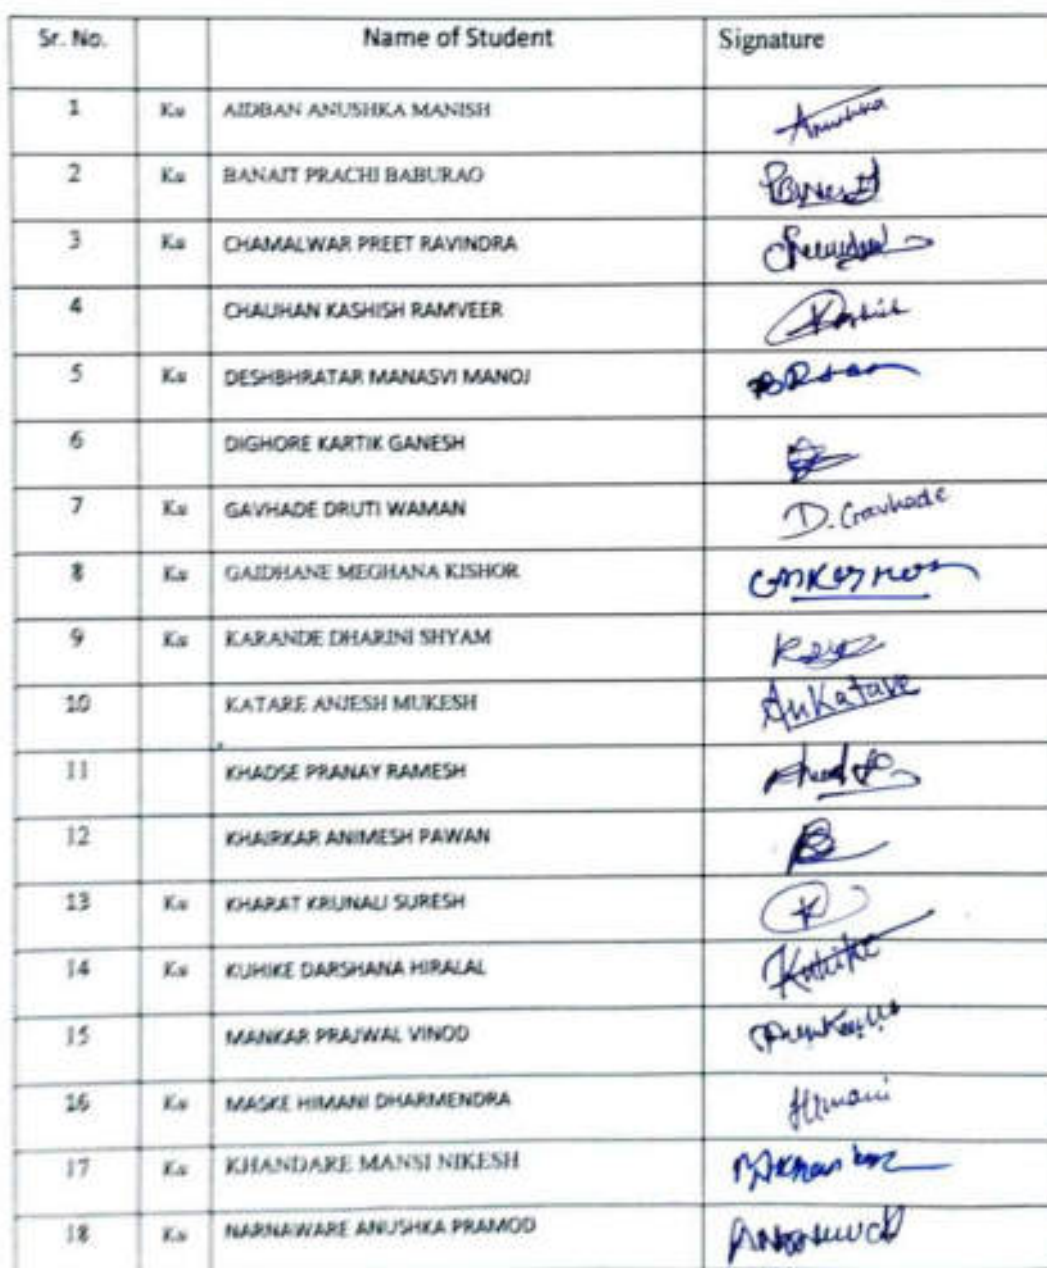 Sr. No. Name of Student Signature
1 Ku AIDBAN ANUSHKA MANISH Anushka
2 Ku BANAIT PRACHI BABURAO
3 Ku CHAMALWAR PREET RAVINDRA
4 CHAUHAN KASHISH RAMVEER Kashish
5 Ku DESHBHRATAR MANASVI MANOJ
6 DIGHORE KARTIK GANESH
7 Ku GAVHADE DRUTI WAMAN D. Gavhade
8 Ku GAIDHANE MEGHANA KISHOR
9 Ku KARANDE DHARINI SHYAM
10 KATARE ANJESH MUKESH
11 KHADSE PRANAY RAMESH
12 KHAIRKAR ANIMESH PAWAN
13 Ku KHARAT KRUNALI SURESH K
14 Ku KUHIKE DARSHANA HIRALAL Kuhike
15 MANKAR PRAJWAL VINOD
16 Ku MASKE HIMANI DHARMENDRA Himani
17 Ku KHANDARE MANSI NIKESH
18 Ku NARNAWARE ANUSHKA PRAMOD